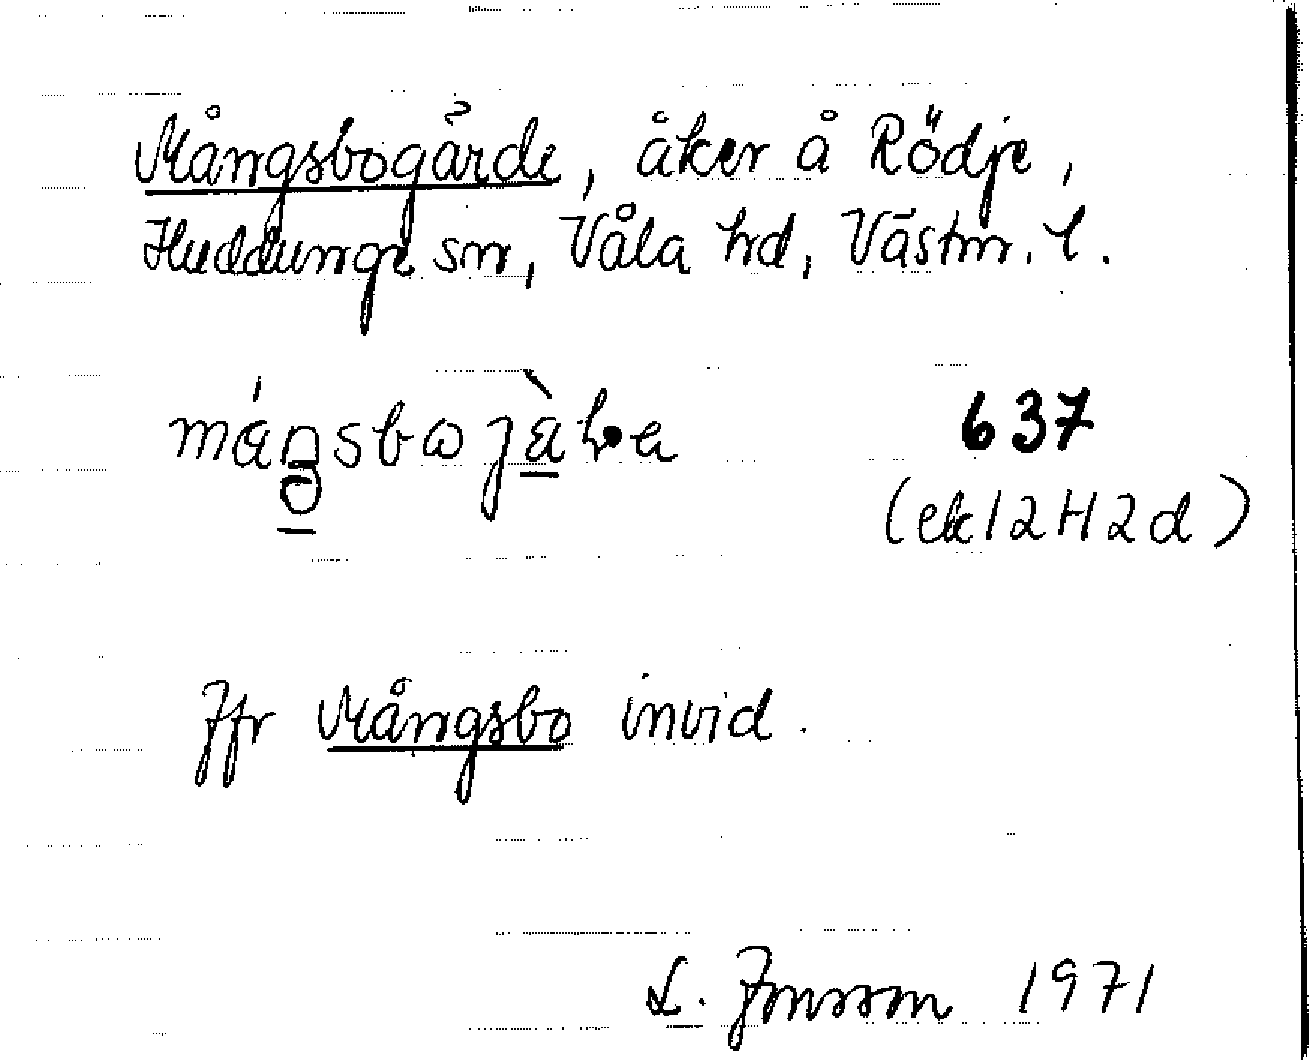 Mångsbogärde, åker å Rödje,
Huddunge sn, Våla hd, Västm. l.
637
(ek 12H2d)
Jfr Mångsbo invid.
L. Jonsson 1971